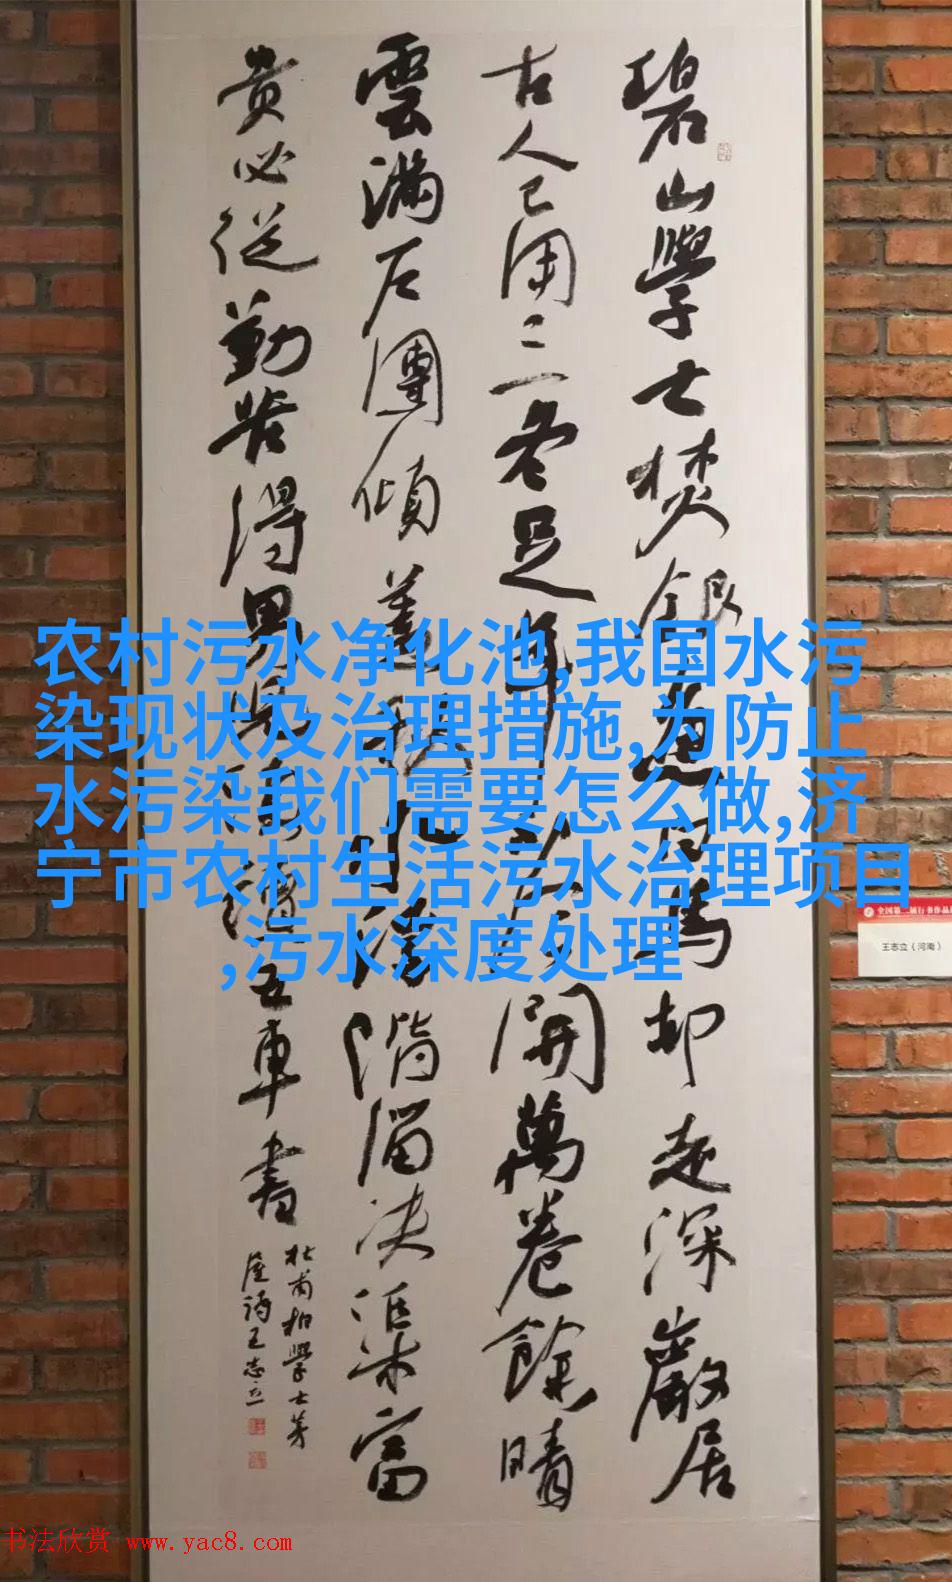 碧山學士焚銀魚白馬却走深巖居
古人已用三冬足年少今開萬卷餘晴
雲滿户團傾蓋秋水浮階溜决渠富
貴必從勤苦得男兒須讀五車書
杜甫柏學士茅
屋詩王志立
农村污水净化池,我国水污
染现状及治理措施,为防止
水污染我们需要怎么做,济
宁市农村生活污水治理项目
,污水深度处理
全国第二届行书作品
王志立（河南）
书法欣赏 www.yac8.com